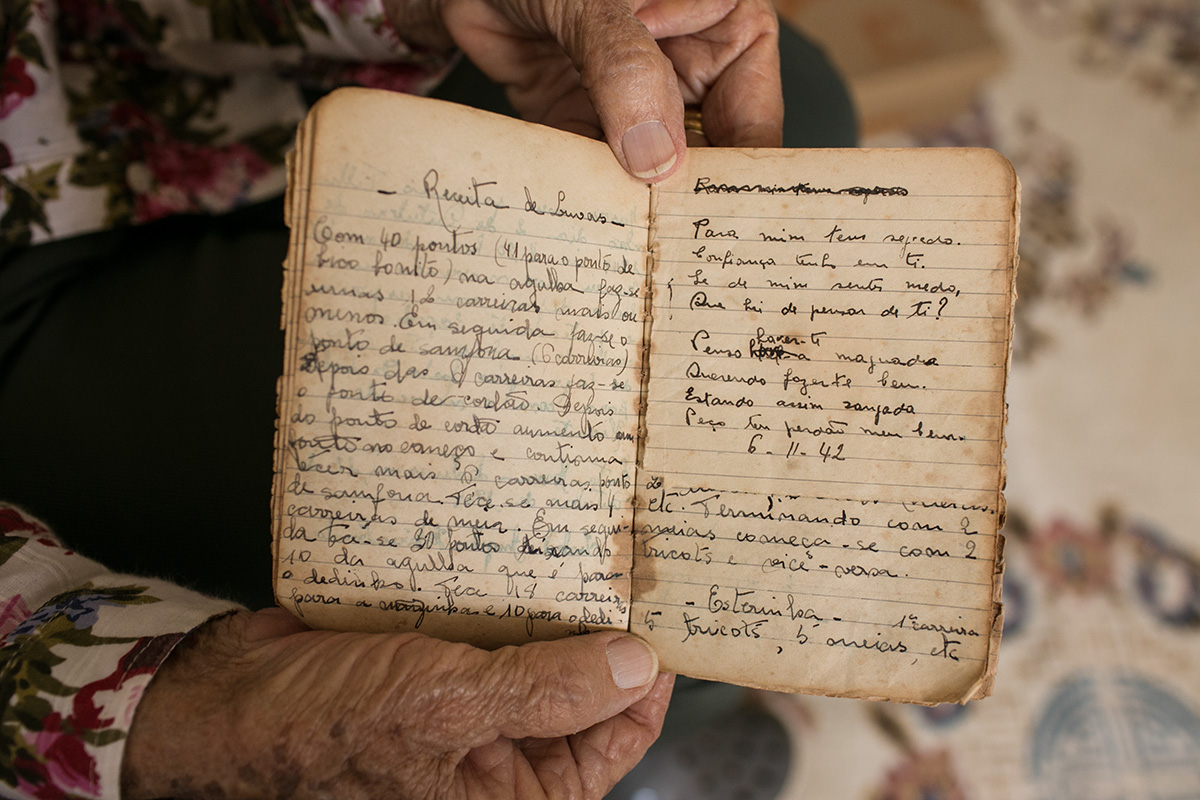 - Receita de Luvas -
Com 40 pontos (41 para o ponto de
bico bonito) na agulha faz-se
umas 12 carreiras mais ou
menos. Em seguida faz-se o
ponto de sanfona (6 carreiras)
Depois das 6 carreiras faz-se
o ponto de cordão Depois
do ponto de cordão aumento um
ponto no começo e continua
tecer mais 8 carreiras ponto
de sanfona. Tece-se mais 4
carreiras de meia. Em segui-
da tece-se 30 pontos deixando
10 da agulha que é para
o dedinho. Tece 18 carreiras
para a e 10 para o dedi-
Para mim tens segredo.
Confiança tenho em ti.
Se de mim sentes medo,
Que hei de pensar de ti?
fazer-te
Penso magoada
Querendo fazer-te bem.
Estando assim zangada
Peço teu perdão meu bem.
6-11-42
etc. Terminando com 2
meias começa-se com 2
tricots e vice-versa.
- Esteirinha - 1ª carreira
5 tricots, 5 meias, etc